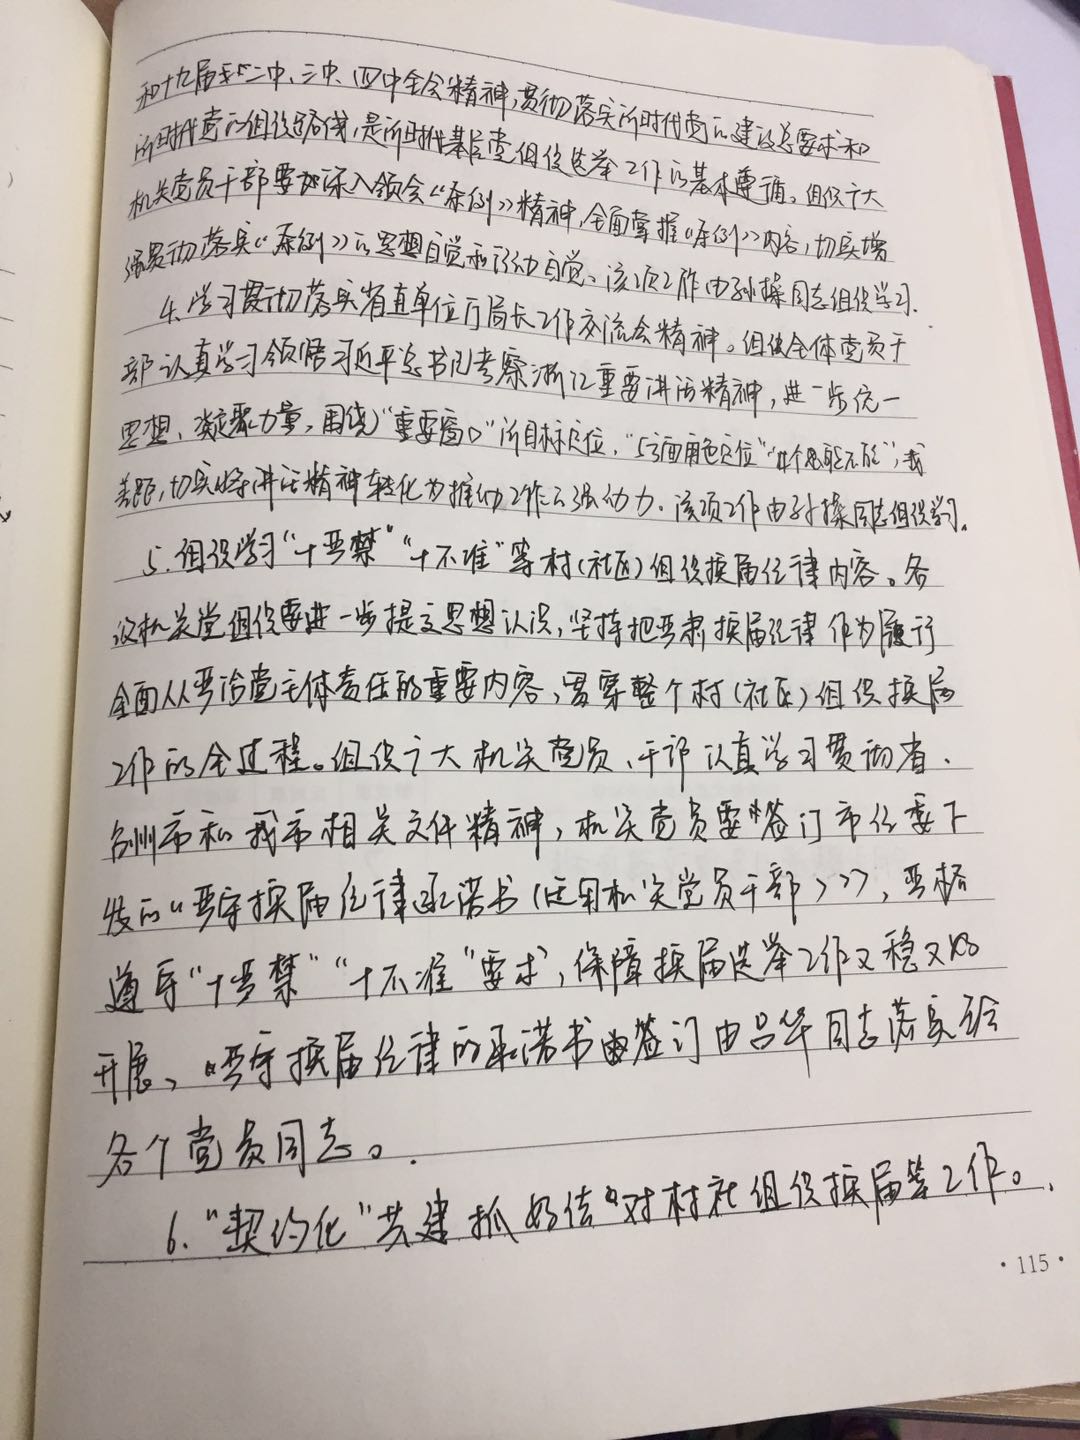 和十九届二中、三中、四中全会精神,贯彻落实新时代党的建设总要求和
新时代党的组织路线,是新时代基层党组织选举工作的基本遵循。组织广大
机关党员干部要深入领会《条例》精神,全面掌握《条例》内容,切实增
强贯彻落实《条例》的思想自觉和行动自觉。该项工作由孙操同志组织学习.
4.学习贯彻落实省直单位厅局长工作交流会精神。组织全体党员干
部认真学习领悟习近平总书记考察浙江重要讲话精神,进一步统一
思想、凝聚力量,围绕"重要窗口"新目标定位,"5方面角色定位""个",找
差距,切实将讲话精神转化为推动工作的强动力.该项工作由孙操同志组织学习.
5.组织学习"十严禁""十不准"等村(社区)组织换届纪律内容。各
级机关党组织要进一步提高思想认识,坚持把严肃换届纪律作为履行
全面从严治党主体责任的重要内容,贯穿整个村(社区)组织换届
工作的全过程。组织广大机关党员、干部认真学习贯彻省、
台州市和我市相关文件精神,机关党员要签订市纪委下
发的《严守换届纪律承诺书(适用机关党员干部)》,严格
遵守"十严禁""十不准"要求,保障换届选举工作又稳又好
开展,严守换届纪律的承诺书签订由吕华同志落实给
各个党员同志。
6."契约化"共建抓好结对村社组织换届等工作。
·115·